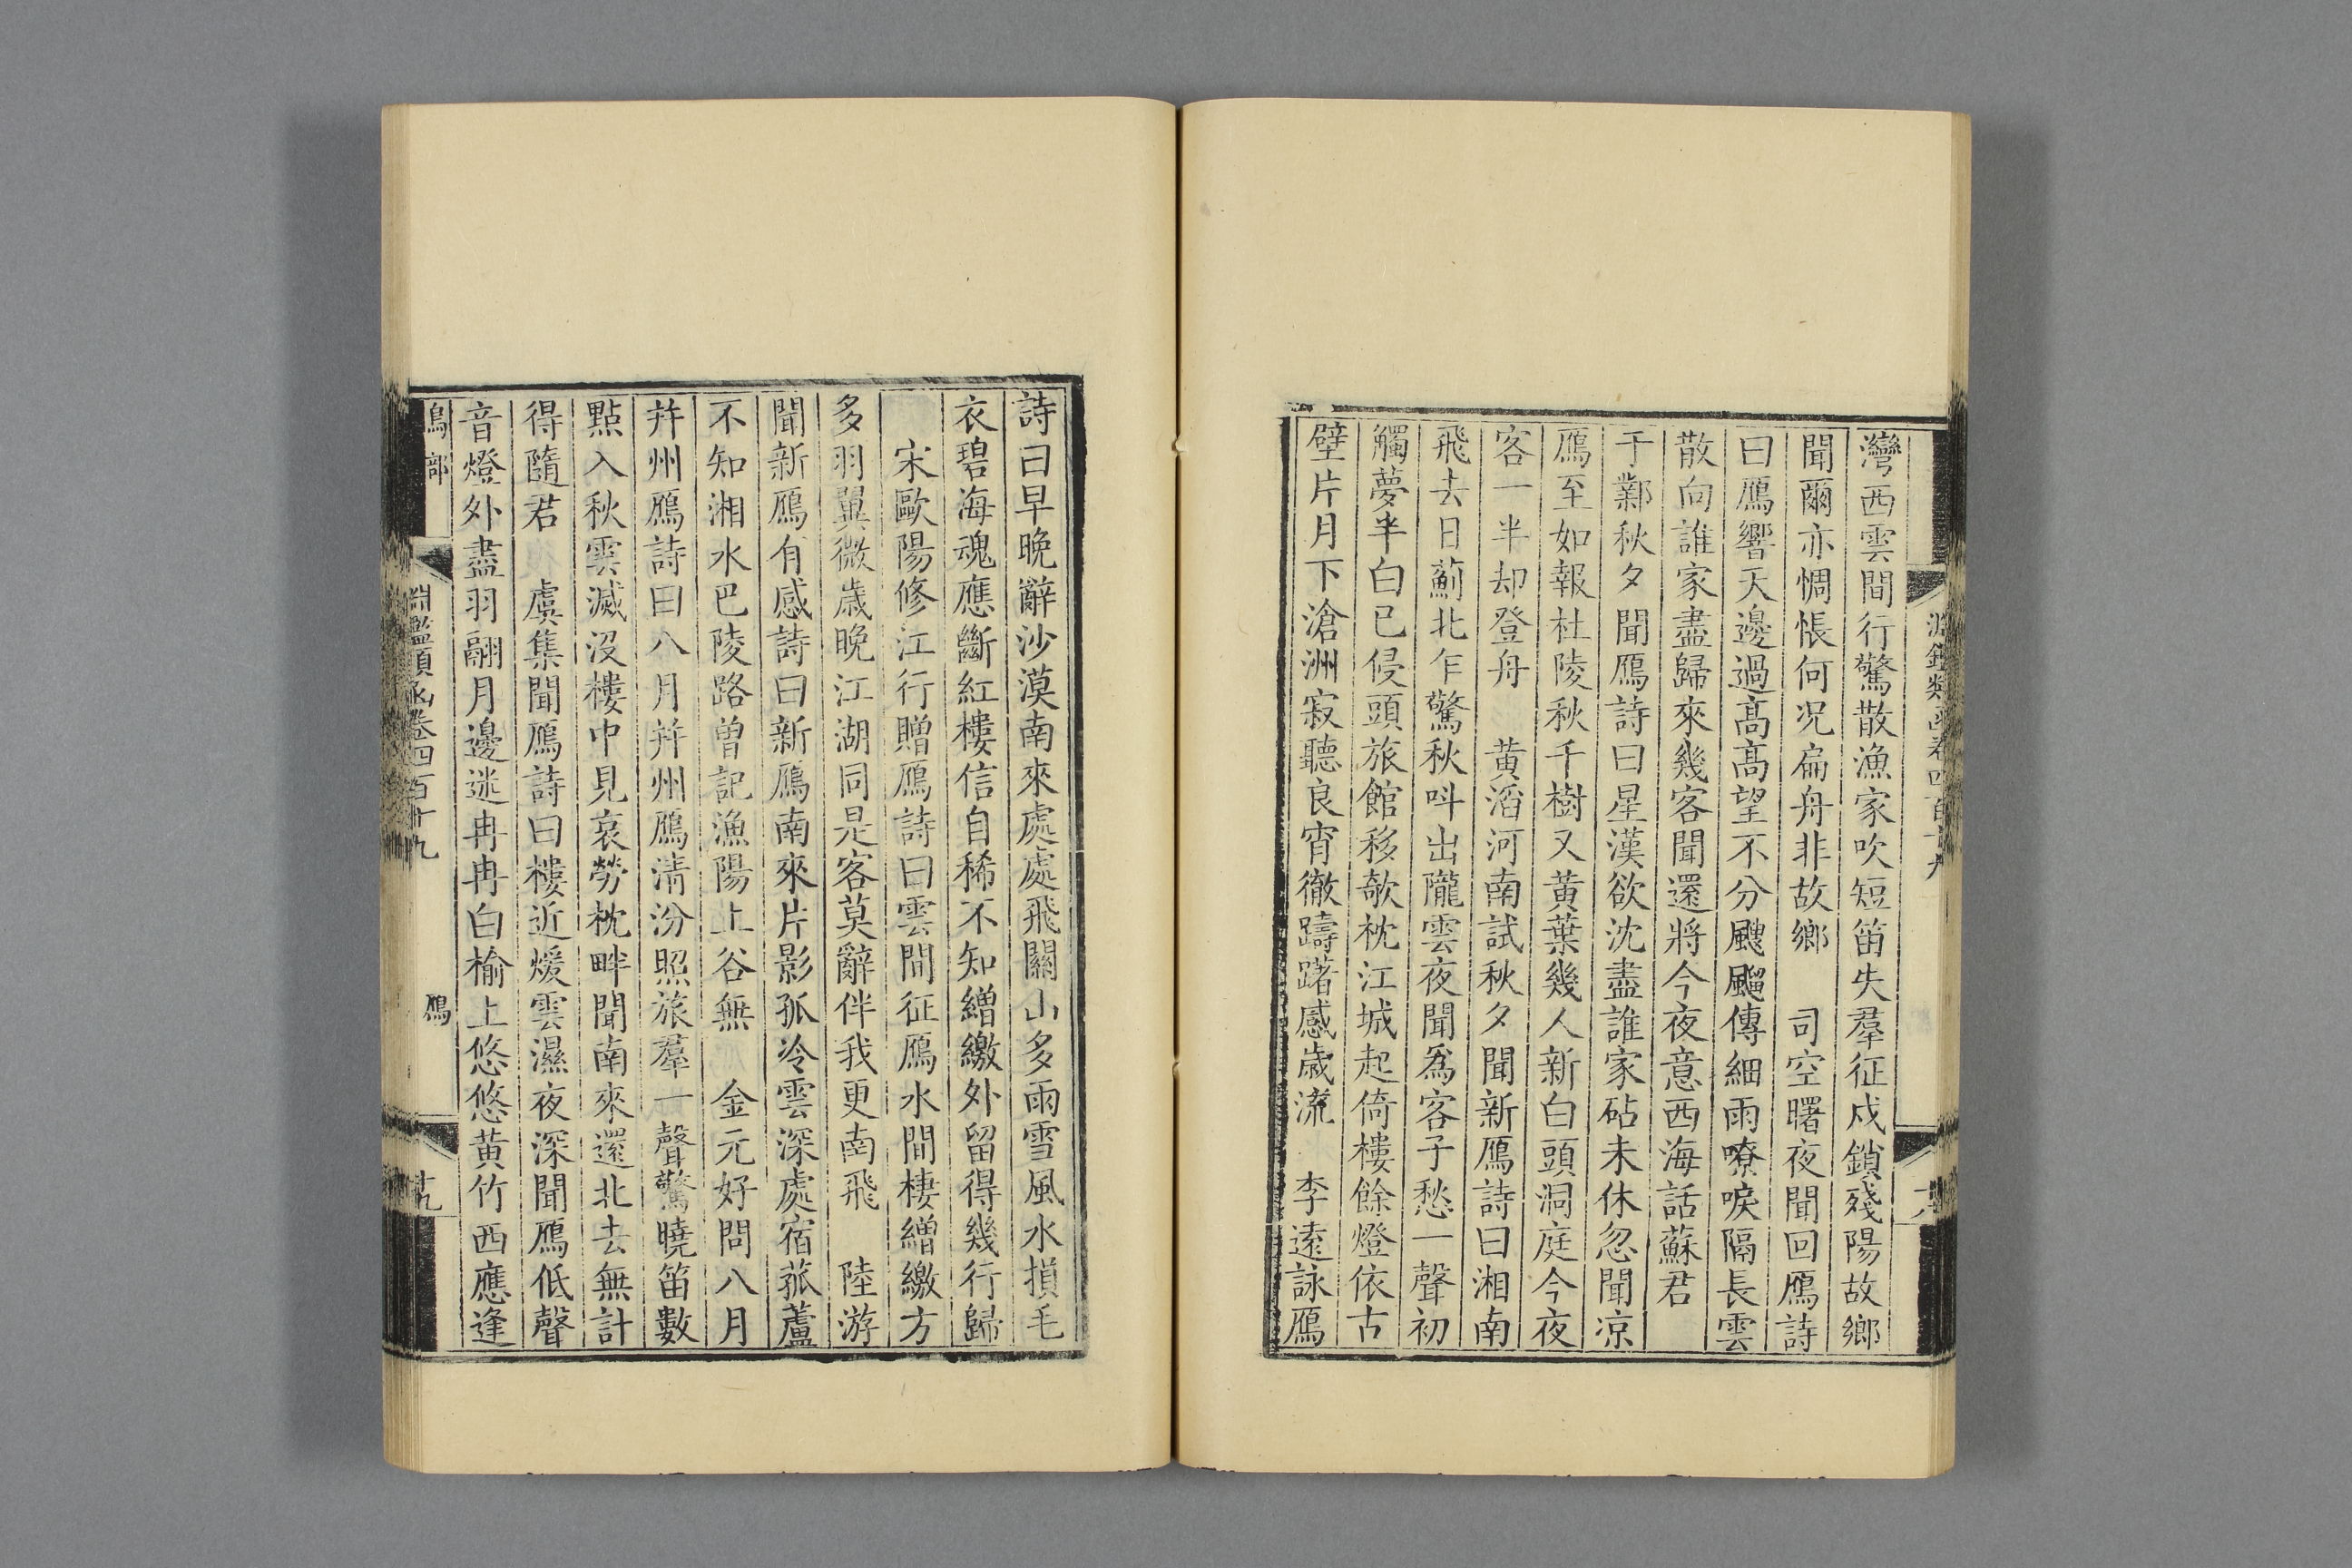 淵鑑類函卷四百十九
灣西雲間行驚散漁家吹短笛失羣征戍鎖殘陽故鄉
聞爾亦惆悵何况扁舟非故鄉　司空曙夜聞回鴈詩
曰鴈響天邊過高高望不分颼飀傳細雨嘹唳隔長雲
散向誰家盡歸來幾客聞還將今夜意西海話蘇君
于鄴秋夕聞鴈詩曰星漢欲沈盡誰家砧未休忽聞涼
鴈至如報杜陵秋千樹又黃葉幾人新白頭洞庭今夜
客一半却登舟　黃滔河南試秋夕聞新鴈詩曰湘南
飛去日薊北乍驚秋呌出隴雲夜聞爲客子愁一聲初
觸夢半白已侵頭旅館移欹枕江城起倚樓餘燈依古
壁片月下滄洲寂聽良宵徹躊躇感歲流　李遠詠鴈
詩曰早晚辭沙漠南來處處飛關山多雨雪風水損毛
衣碧海魂應斷紅樓信自稀不知繒繳外留得幾行歸
宋歐陽修江行贈鴈詩曰雲間征鴈水間棲繒繳方
多羽翼微歲晚江湖同是客莫辭伴我更南飛　陸游
聞新鴈有感詩曰新鴈南來片影孤冷雲深處宿菰蘆
不知湘水巴陵路曾記漁陽上谷無　金元好問八月
并州鴈詩曰八月并州鴈清汾照旅羣一聲驚曉笛數
點入秋雲滅沒樓中見哀勞枕畔聞南來還北去無計
得隨君　虞集聞鴈詩曰樓近煖雲濕夜深聞鴈低聲
音燈外盡羽翮月邊迷冉冉白榆上悠悠黃竹西應逢
鳥部
淵鑑類函卷四百十九
鴈
十九